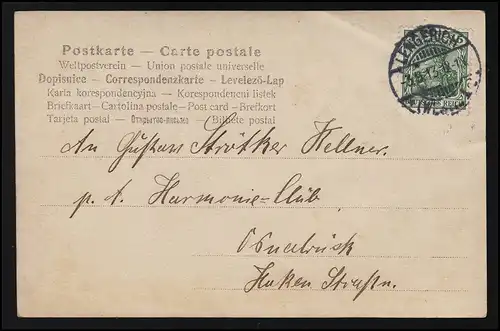 Postkarte — Carte postale
Weltpostverein — Union postale universelle
Dopisnice — Correspondenzkarte — Levelező-Lap
Karta korespondencyjna — Korespondenční listek
Briefkaart — Cartolina postale — Post card — Brefkort
Tarjeta postal — Открытое письмо — Bilhete postal
LENGERICH
An Gustav Strötker Kellner.
p. A. Harmonie=Club
Osnabrück
Haken Straße.